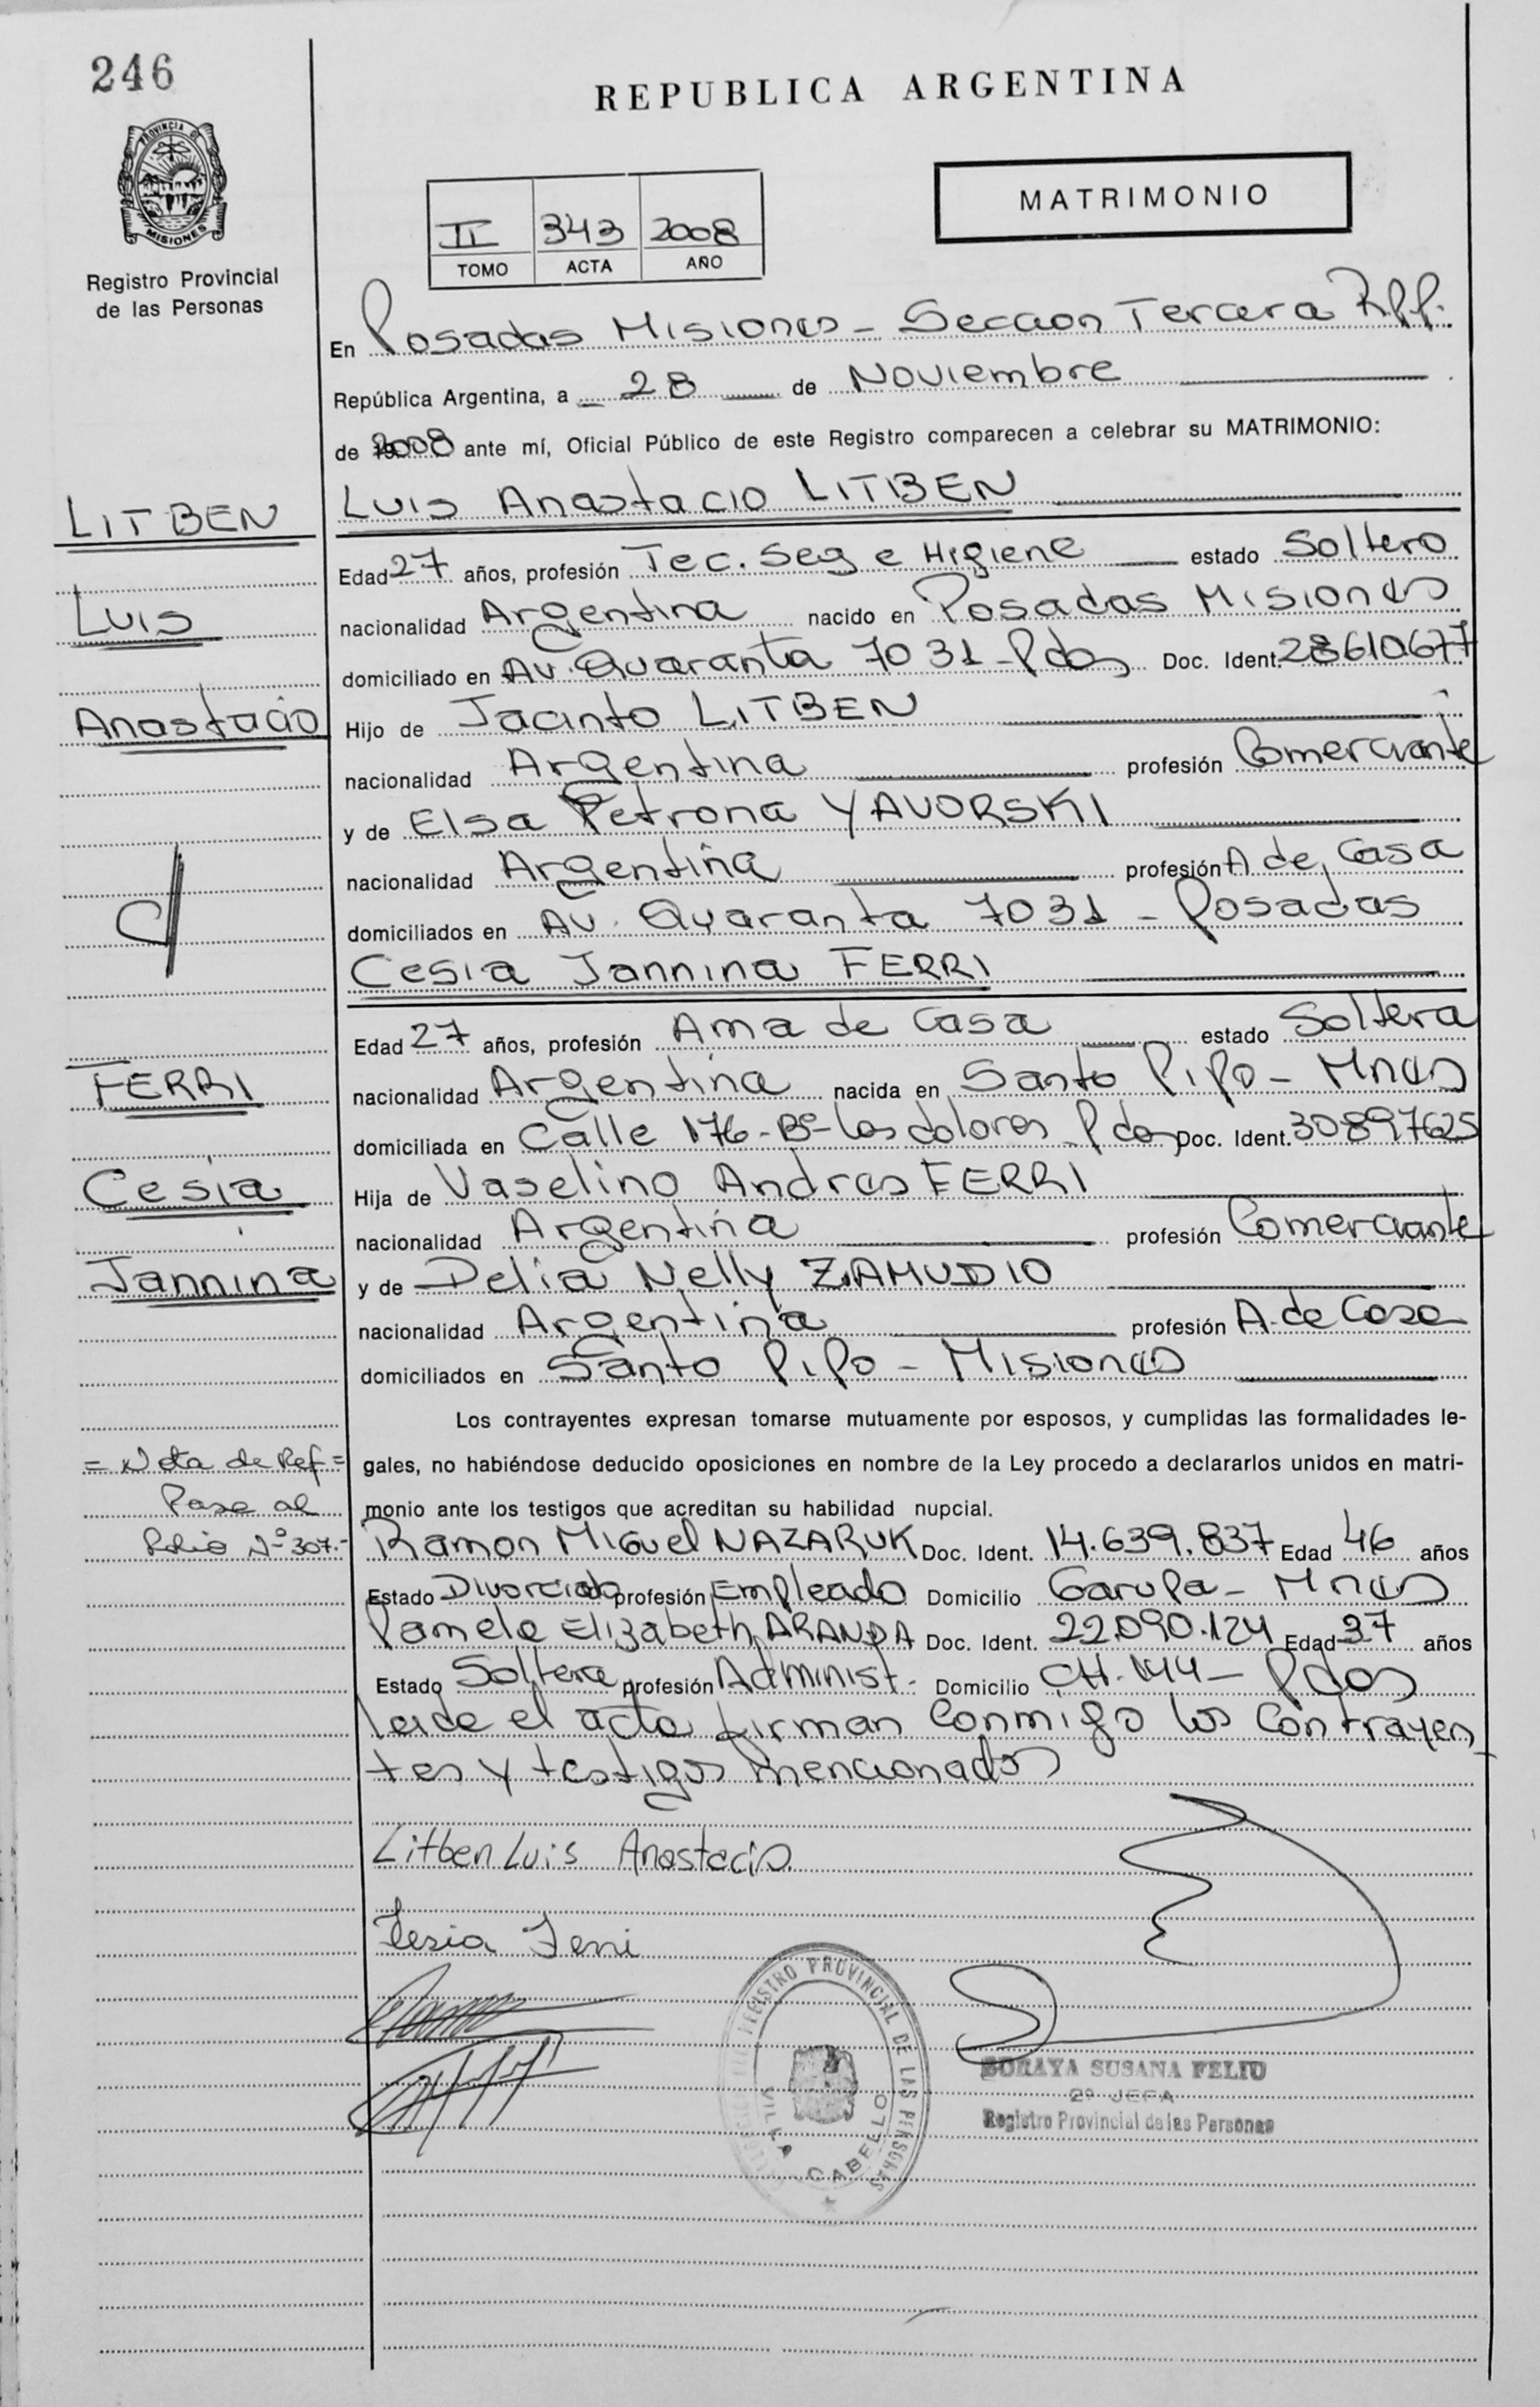 246
REPUBLICA ARGENTINA
PROVINCIA DE
MISIONES
Registro Provincial
de las Personas
MATRIMONIO
II 343 2008
TOMO ACTA AÑO
En Posadas Misiones - Seccion Tercera R.P.P.
República Argentina, a 28 de Noviembre
de 2008 ante mí, Oficial Público de este Registro comparecen a celebrar su MATRIMONIO:
LITBEN
Luis Anastacio LITBEN
Edad 27 años, profesión Tec. Seg e Higiene estado Soltero
Luis
nacionalidad Argentina nacido en Posadas Misiones
domiciliado en Av. Quaranta 7031 - Pdas Doc. Ident. 28610677
Anastacio
Hijo de Jacinto LITBEN
nacionalidad Argentina profesión Comerciante
y de Elsa Petrona YAVORSKI
nacionalidad Argentina profesión A de Casa
c/
domiciliados en Av. Quaranta 7031 - Posadas
Cesia Jannina FERRI
Edad 27 años, profesión Ama de Casa estado Soltera
FERRI
nacionalidad Argentina nacida en Santo Pipo - Mnes
domiciliada en Calle 176 - Bº Los dolores Pdas Doc. Ident. 30897625
Cesia
Hija de Vaselino Andres FERRI
nacionalidad Argentina profesión Comerciante
Jannina
y de Delia Nelly ZAMUDIO
nacionalidad Argentina profesión A. de Casa
domiciliados en Santo Pipo - Misiones
Los contrayentes expresan tomarse mutuamente por esposos, y cumplidas las formalidades le-
= Nota de Ref =
gales, no habiéndose deducido oposiciones en nombre de la Ley procedo a declararlos unidos en matri-
Pase al
monio ante los testigos que acreditan su habilidad nupcial.
Folio Nº 307.-
Ramon Miguel NAZARUK Doc. Ident. 14.639.837 Edad 46 años
Estado Divorciado profesión Empleado Domicilio Garupa - Mnes
Pamela Elizabeth ARANDA Doc. Ident. 22.090.124 Edad 37 años
Estado Soltera profesión Administ. Domicilio CH. 144 - Pdas
leida el acta firman conmigo los contrayen
tes y testigos mencionados
Litben Luis Anastacio.
Cesia Ferri
REGISTRO PROVINCIAL DE LAS PERSONAS
VILLA CABELLO
SORAYA SUSANA FELIU
2º JEFA
Registro Provincial de las Personas